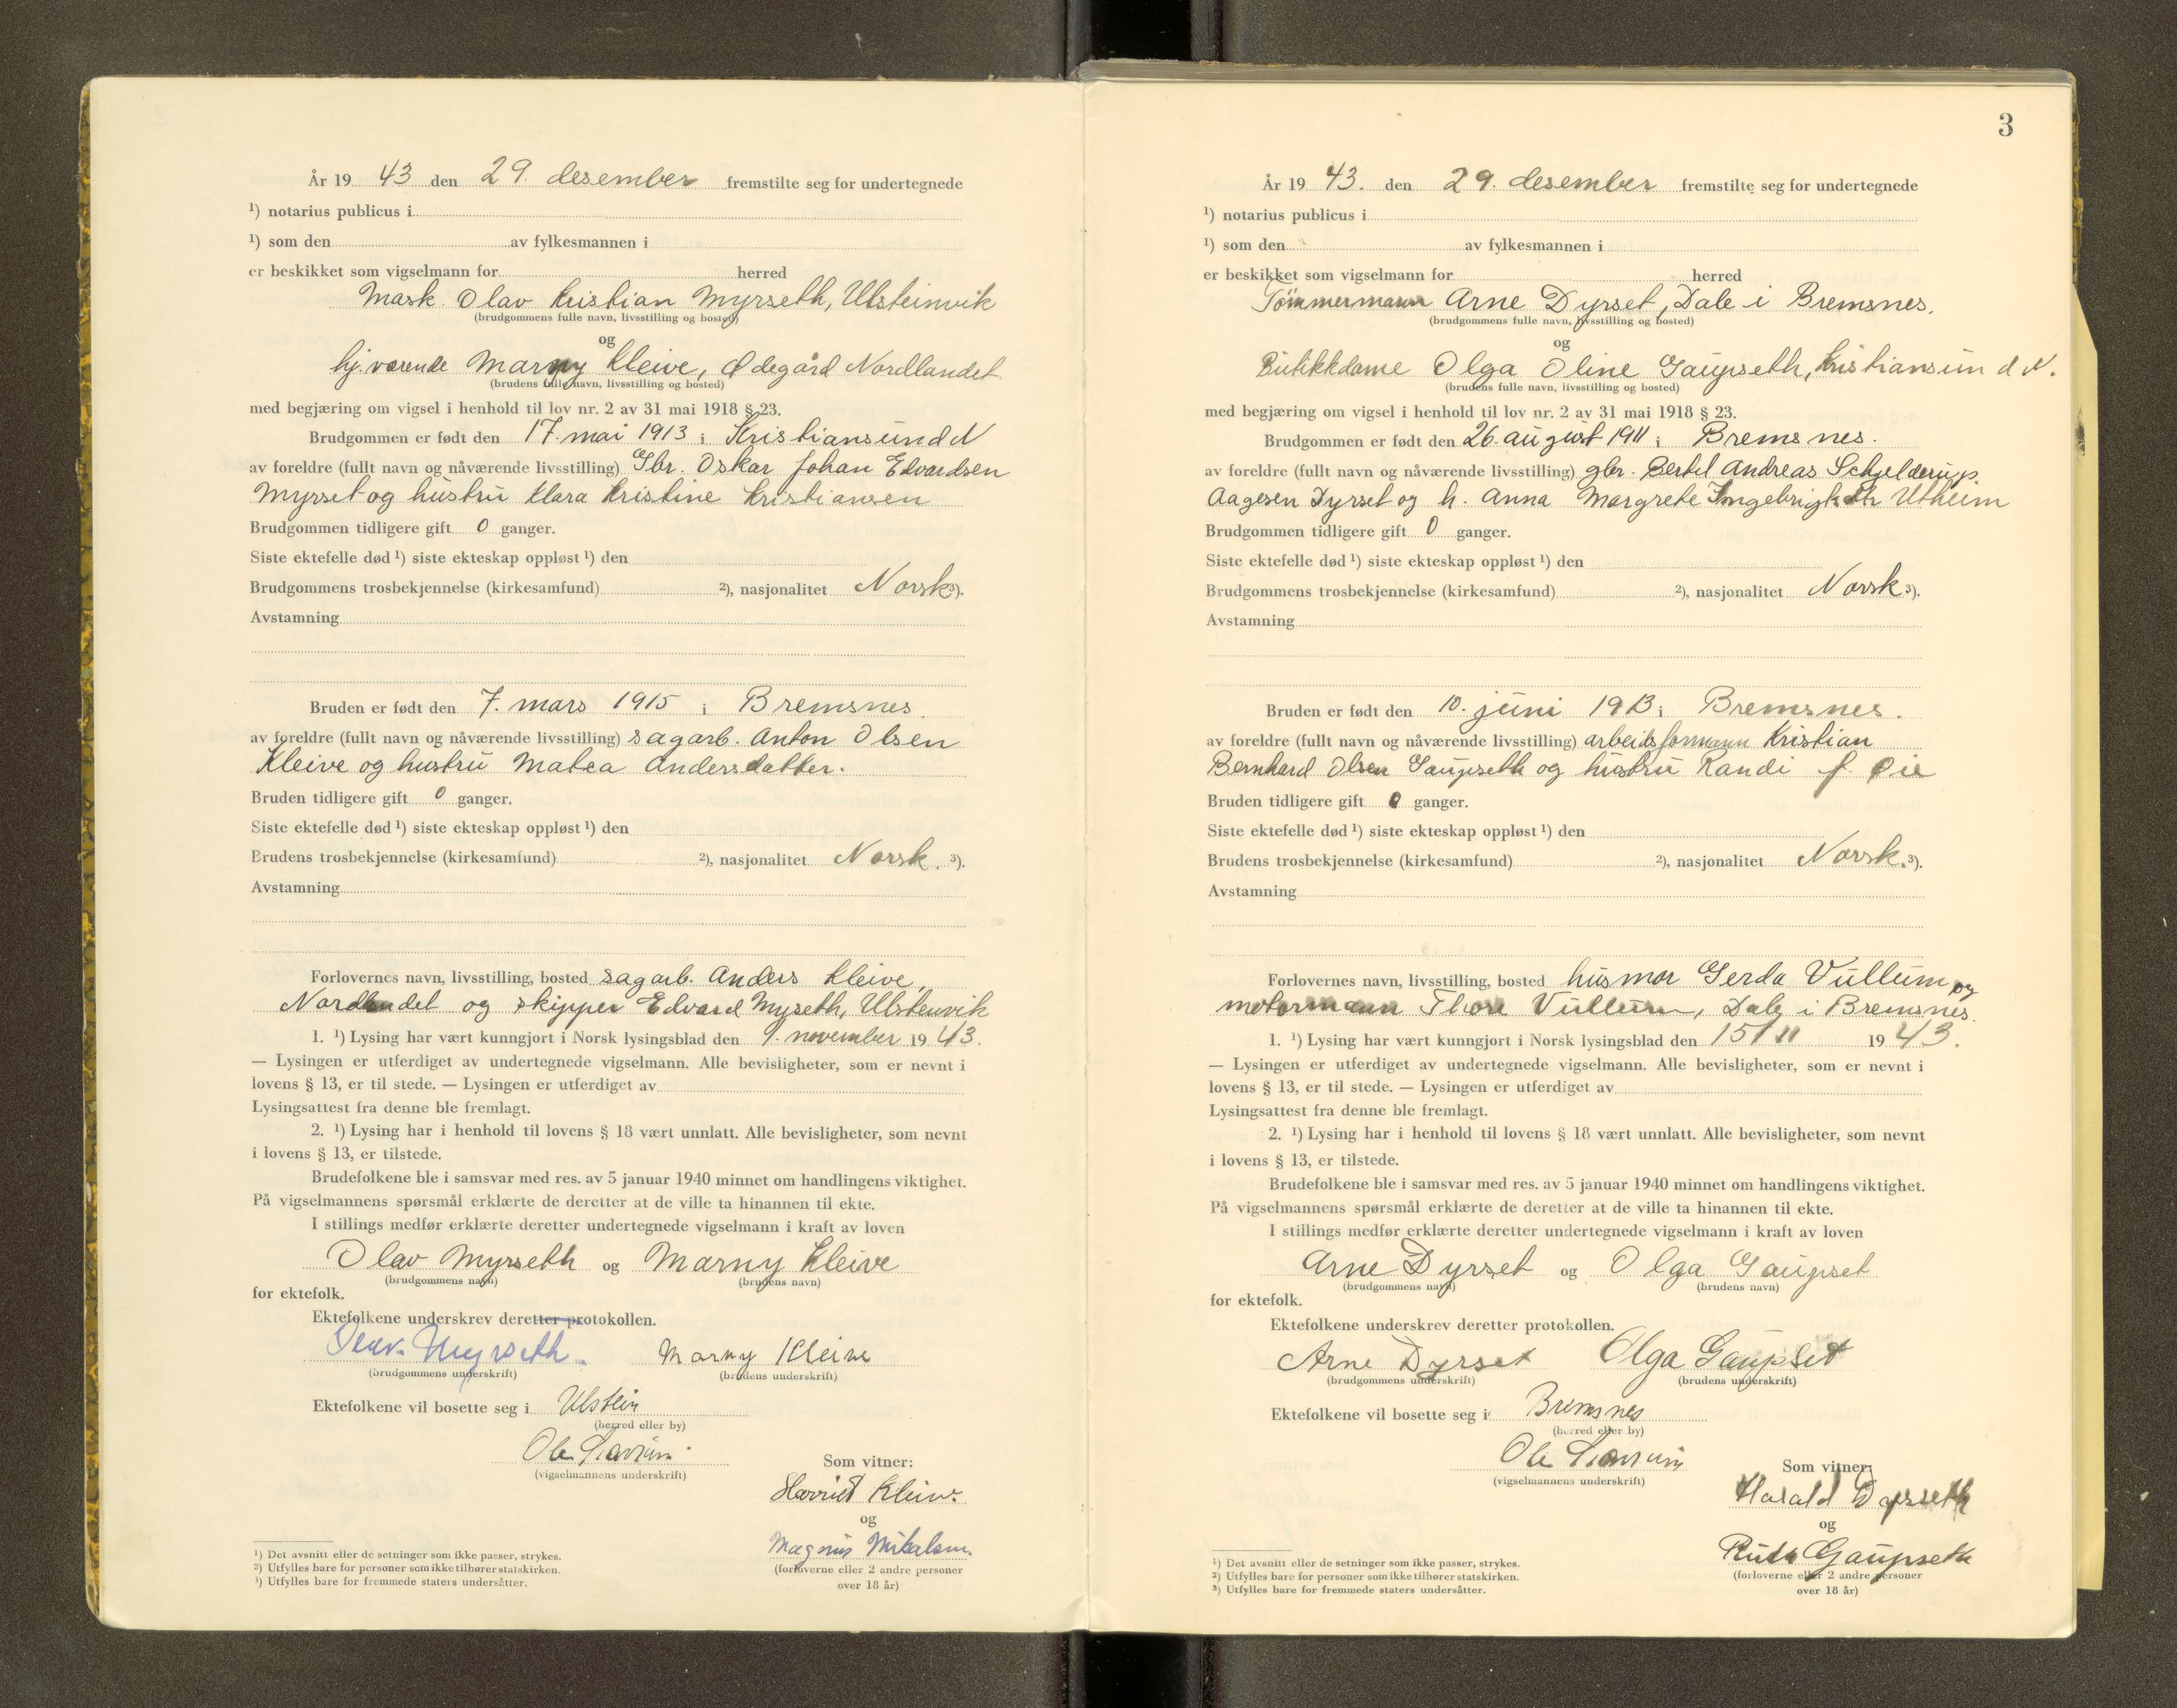 År 19 43 den 29. desember fremstilte seg for undertegnede
¹) notarius publicus i
¹) som den av fylkesmannen i
er beskikket som vigselmann for herred
Mask. Olav Kristian Myrseth, Ulsteinvik
(brudgommens fulle navn, livsstilling og bosted)
og
hj.værende Marny Kleive, Ødegård Nordlandet
(brudens fulle navn, livsstilling og bosted)
med begjæring om vigsel i henhold til lov nr. 2 av 31 mai 1918 § 23.
Brudgommen er født den 17. mai 1913 i Kristiansund N
av foreldre (fullt navn og nåværende livsstilling) Gbr. Oskar Johan Edvardsen
Myrset og hustru Klara Kristine Kristiansen
Brudgommen tidligere gift 0 ganger.
Siste ektefelle død ¹) siste ekteskap oppløst ¹) den
Brudgommens trosbekjennelse (kirkesamfund) ²), nasjonalitet Norsk ³).
Avstamning
Bruden er født den 7. mars 1915 i Bremsnes
av foreldre (fullt navn og nåværende livsstilling) sagarb. Anton Olsen
Kleive og hustru Matea Andersdatter.
Bruden tidligere gift 0 ganger.
Siste ektefelle død ¹) siste ekteskap oppløst ¹) den
Brudens trosbekjennelse (kirkesamfund) ²), nasjonalitet Norsk. ³).
Avstamning
Forlovernes navn, livsstilling, bosted sagarb. Anders Kleive,
Nordlandet og skipper Edvard Myseth, Ulsteinvik
1. ¹) Lysing har vært kunngjort i Norsk lysingsblad den 9. november 19 43.
— Lysingen er utferdiget av undertegnede vigselmann. Alle bevisligheter, som er nevnt i
lovens § 13, er til stede. — Lysingen er utferdiget av
Lysingsattest fra denne ble fremlagt.
2. ¹) Lysing har i henhold til lovens § 18 vært unnlatt. Alle bevisligheter, som nevnt
i lovens § 13, er tilstede.
Brudefolkene ble i samsvar med res. av 5 januar 1940 minnet om handlingens viktighet.
På vigselmannens spørsmål erklærte de deretter at de ville ta hinannen til ekte.
I stillings medfør erklærte deretter undertegnede vigselmann i kraft av loven
Olav Myrseth og Marny Kleive
(brudgommens navn) (brudens navn)
for ektefolk.
Ektefolkene underskrev deretter protokollen.
Olav Myrseth. Marny Kleive
(brudgommens underskrift) (brudens underskrift)
Ektefolkene vil bosette seg i Ulstein
(herred eller by)
Ole
(vigselmannens underskrift)
Som vitner:
Harriet Kleive
og
Magnus Mikalsen.
(forloverne eller 2 andre personer
over 18 år)
¹) Det avsnitt eller de setninger som ikke passer, strykes.
²) Utfylles bare for personer som ikke tilhører statskirken.
³) Utfylles bare for fremmede staters undersåtter.
3
År 19 43. den 29. desember fremstilte seg for undertegnede
¹) notarius publicus i
¹) som den av fylkesmannen i
er beskikket som vigselmann for herred
Tömmermann Arne Dyrset, Dale i Bremsnes.
(brudgommens fulle navn, livsstilling og bosted)
og
Butikkdame Olga Oline Gaupseth, Kristiansund N.
(brudens fulle navn, livsstilling og bosted)
med begjæring om vigsel i henhold til lov nr. 2 av 31 mai 1918 § 23.
Brudgommen er født den 26. august 1911 i Bremsnes.
av foreldre (fullt navn og nåværende livsstilling) gbr. Bertel Andreas Schjelderup
Aagesen Dyrset og h. Anna Margrete Utheim
Brudgommen tidligere gift 0 ganger.
Siste ektefelle død ¹) siste ekteskap oppløst ¹) den
Brudgommens trosbekjennelse (kirkesamfund) ²), nasjonalitet Norsk ³).
Avstamning
Bruden er født den 10. juni 1913 i Bremsnes.
av foreldre (fullt navn og nåværende livsstilling) arbeidsformann Kristian
Bernhard Olsen Gaupseth og hustru Randi f. Øie
Bruden tidligere gift 0 ganger.
Siste ektefelle død ¹) siste ekteskap oppløst ¹) den
Brudens trosbekjennelse (kirkesamfund) ²), nasjonalitet Norsk. ³).
Avstamning
Forlovernes navn, livsstilling, bosted husmor Gerda Vullum og
motormann Thore Vullum, Dale i Bremsnes.
1. ¹) Lysing har vært kunngjort i Norsk lysingsblad den 15/11 19 43.
— Lysingen er utferdiget av undertegnede vigselmann. Alle bevisligheter, som er nevnt i
lovens § 13, er til stede. — Lysingen er utferdiget av
Lysingsattest fra denne ble fremlagt.
2. ¹) Lysing har i henhold til lovens § 18 vært unnlatt. Alle bevisligheter, som nevnt
i lovens § 13, er tilstede.
Brudefolkene ble i samsvar med res. av 5 januar 1940 minnet om handlingens viktighet.
På vigselmannens spørsmål erklærte de deretter at de ville ta hinannen til ekte.
I stillings medfør erklærte deretter undertegnede vigselmann i kraft av loven
Arne Dyrset og Olga Gaupset
(brudgommens navn) (brudens navn)
for ektefolk.
Ektefolkene underskrev deretter protokollen.
Arne Dyrset Olga Gaupset
(brudgommens underskrift) (brudens underskrift)
Ektefolkene vil bosette seg i Bremsnes
(herred eller by)
Ole
(vigselmannens underskrift)
Som vitner:
Harald Dyrseth
og
Ruth Gaupseth
(forloverne eller 2 andre personer
over 18 år)
¹) Det avsnitt eller de setninger som ikke passer, strykes.
²) Utfylles bare for personer som ikke tilhører statskirken.
³) Utfylles bare for fremmede staters undersåtter.